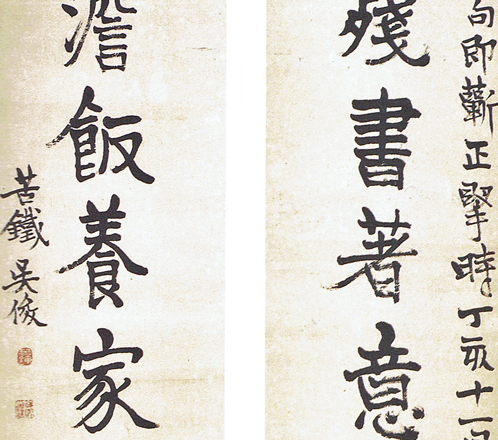 句即蘄正掔時丁亥十一
殘書著意
澹飯養家
苦鐵吳俊